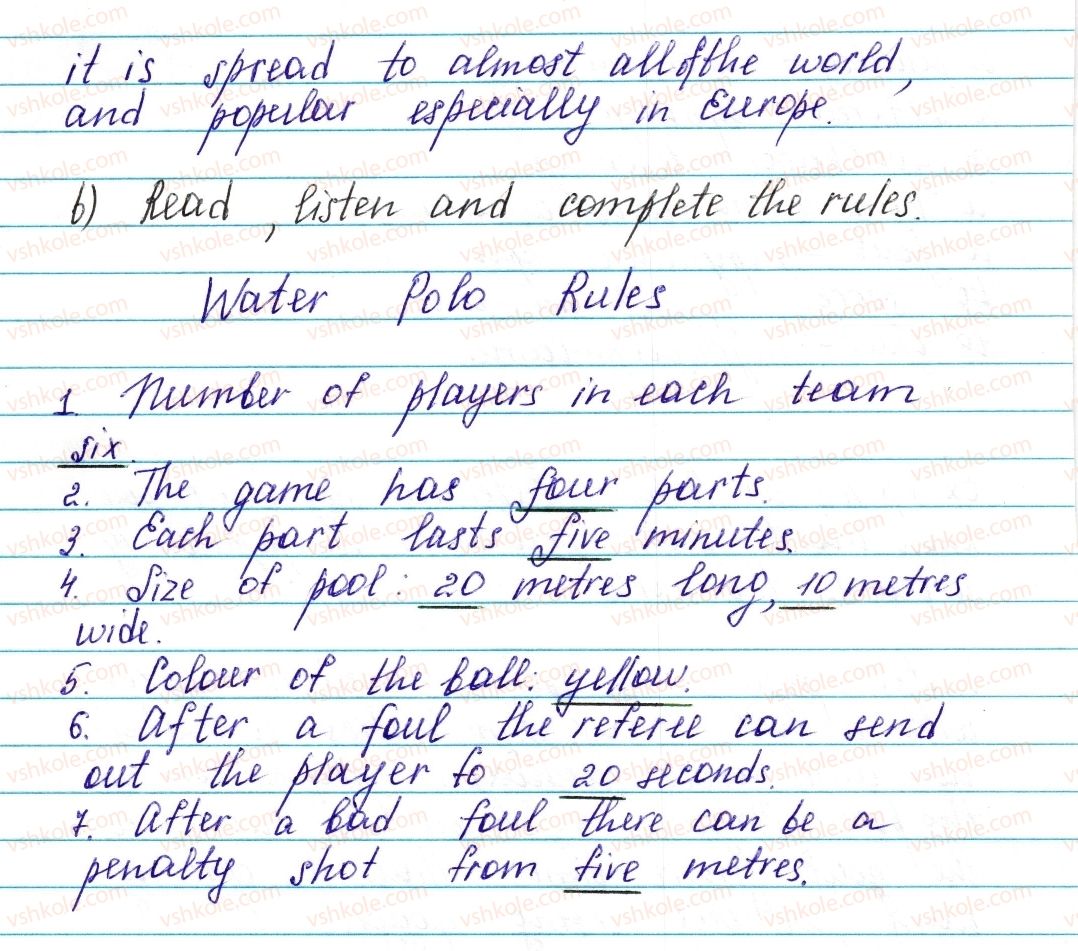 it is spread to almost all of the world,
and popular especially in Europe.
b) Read, listen and complete the rules.
Water Polo Rules
1 Number of players in each team
six.
2. The game has four parts.
3. Each part lasts five minutes.
4. Size of pool: 20 metres long, 10 metres
wide.
5. Colour of the ball: yellow.
6. After a foul the referee can send
out the player fo 20 seconds.
7. After a bad foul there can be a
penalty shot from five metres.